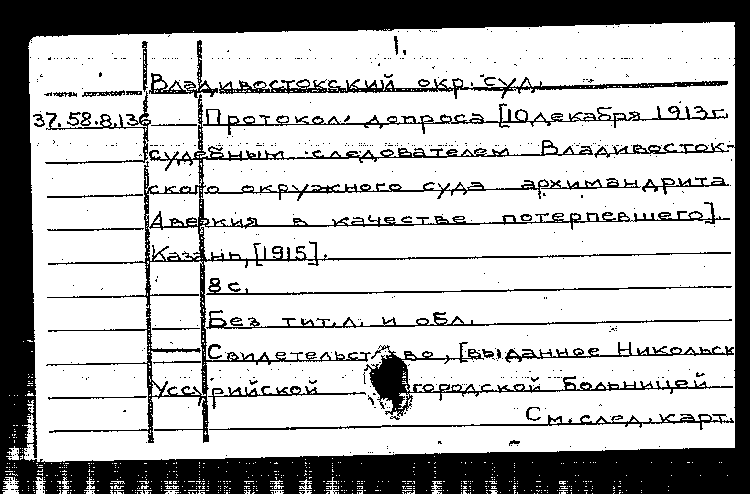 1.
Владивостокский окр. суд.
37.58.8.136 Протокол допроса [10 декабря 1913 г.
судебным следователем Владивосток-
ского окружного суда архимандрита
Аверкия в качестве потерпевшего].
Казань, [1915].
8 с.
Без тит. л. и обл.
Свидетельство, [выданное Никольск
Уссурийской городской больницей
См. след. карт.